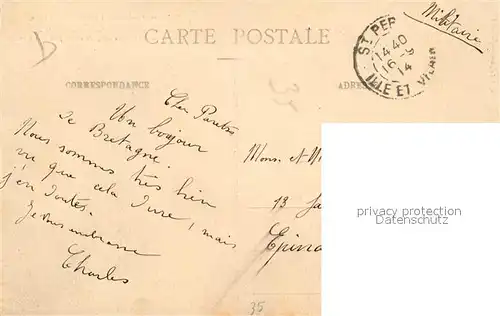 CARTE POSTALE
Militaire
CORRESPONDANCE
ADRES
ST. PER
14 40
16-9
14
ILLE ET VILAINE
Un bonjour
de Bretagne.
Nous sommes très bien
vu que cela dure, mais
j'en doute.
Je vous embrasse
Charles
Mons. et
13
Epina
privacy protection
privacy protection
privacy protection
35